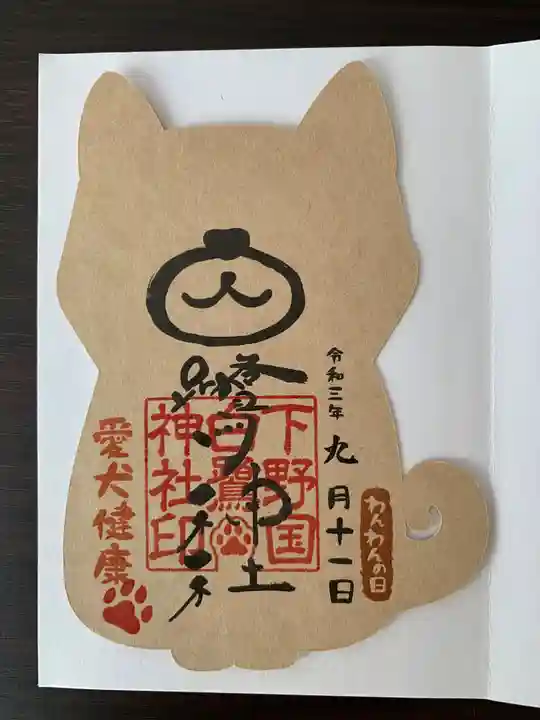 令和三年九月十一日
わんわんの日
下野国
白鷺
神社印
愛犬健康